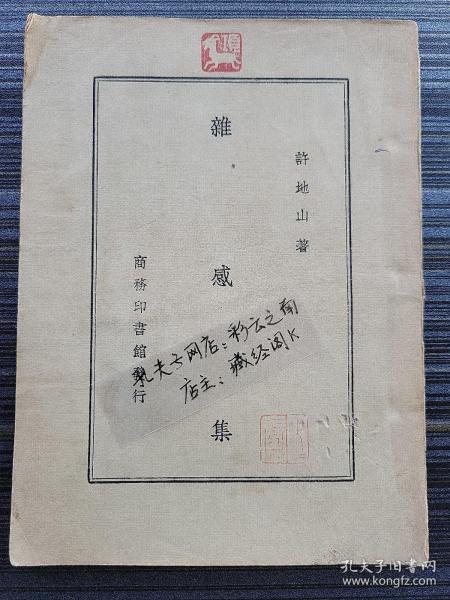 許地山著
雜感集
商務印書館發行
孔夫子网店：彩云之南
店主：藏经阁K
孔夫子旧书网
www.kongfz.com